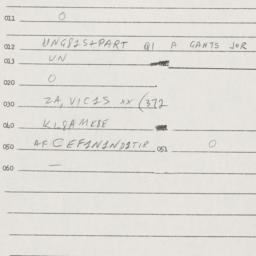 011 0
012 UNG81S+PART QI A GANTS JOR
013 UN
020 0
030 ZA, VIC15 xx (372
040 KLGAMEBE
050 AF CEF1N1ND1TIP 051 0
060 —